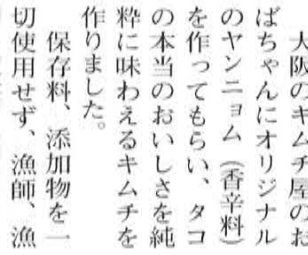 大阪のキムチ屋のお
ばちゃんにオリジナル
のヤンニョム（香辛料）
を作ってもらい、タコ
の本当のおいしさを純
粋に味わえるキムチを
作りました。
保存料、添加物を一
切使用せず、漁師、漁